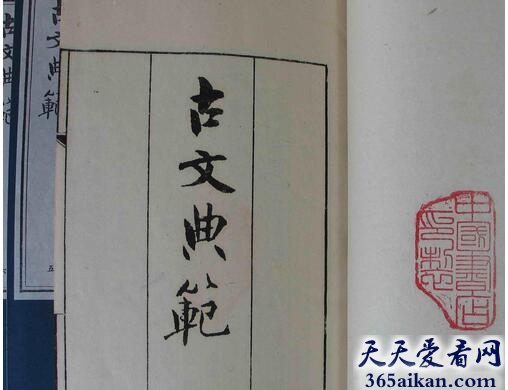 古文典範
古文典範
五
古文典範
中國書店
印製
天天爱看网
365aikan.com